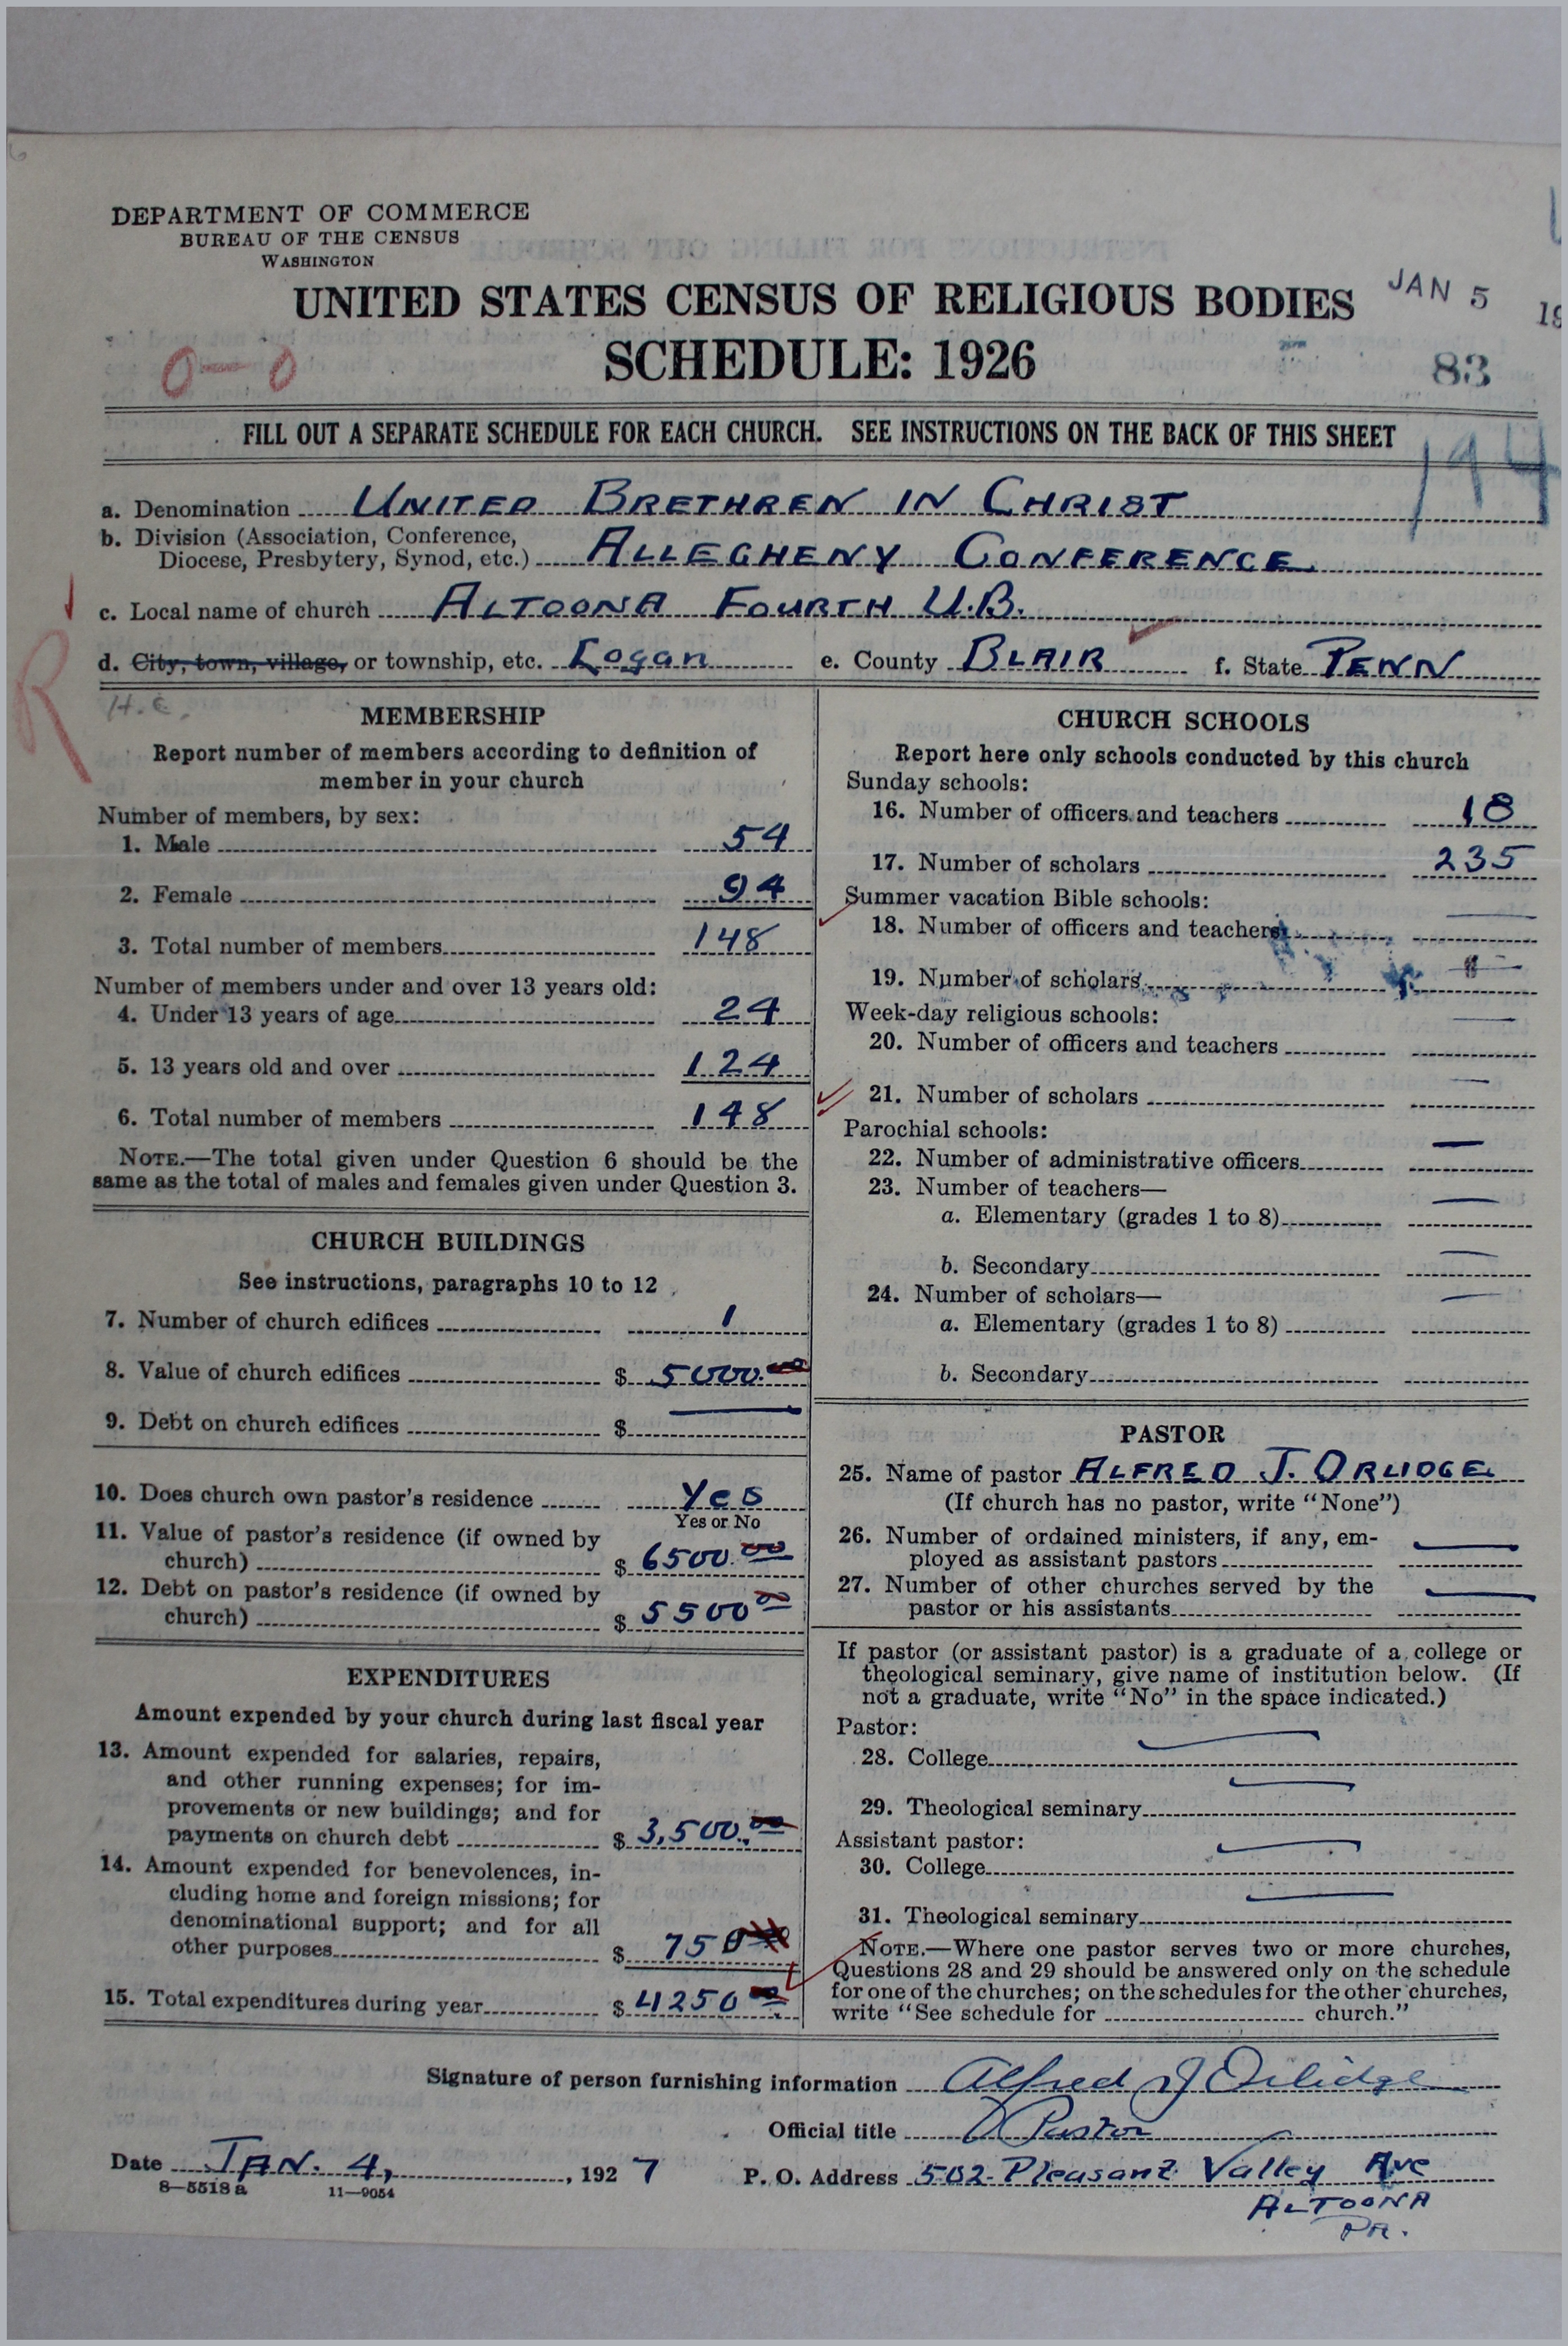 DEPARTMENT OF COMMERCE
BUREAU OF THE CENSUS
WASHINGTON
UNITED STATES CENSUS OF RELIGIOUS BODIES
JAN 5 19
SCHEDULE: 1926
0—0
83
FILL OUT A SEPARATE SCHEDULE FOR EACH CHURCH. SEE INSTRUCTIONS ON THE BACK OF THIS SHEET
194
a. Denomination UNITED BRETHREN IN CHRIST
b. Division (Association, Conference,
Diocese, Presbytery, Synod, etc.) ALLEGHENY CONFERENCE
c. Local name of church ALTOONA FOURTH U.B.
d. City, town, village, or township, etc. Logan e. County BLAIR f. State PENN
R
H.C.
MEMBERSHIP
Report number of members according to definition of
member in your church
Number of members, by sex:
1. Male 54
2. Female 94
3. Total number of members 148
Number of members under and over 13 years old:
4. Under 13 years of age 24
5. 13 years old and over 124
6. Total number of members 148
NOTE.—The total given under Question 6 should be the
same as the total of males and females given under Question 3.
CHURCH BUILDINGS
See instructions, paragraphs 10 to 12
7. Number of church edifices 1
8. Value of church edifices $ 5000.00
9. Debt on church edifices $ —
10. Does church own pastor's residence Yes
Yes or No
11. Value of pastor's residence (if owned by
church) $ 6500.00
12. Debt on pastor's residence (if owned by
church) $ 5500 00
EXPENDITURES
Amount expended by your church during last fiscal year
13. Amount expended for salaries, repairs,
and other running expenses; for im-
provements or new buildings; and for
payments on church debt $ 3,500.00
14. Amount expended for benevolences, in-
cluding home and foreign missions; for
denominational support; and for all
other purposes $ 750
15. Total expenditures during year $ 4250 00
CHURCH SCHOOLS
Report here only schools conducted by this church
Sunday schools:
16. Number of officers and teachers 18
17. Number of scholars 235
Summer vacation Bible schools:
18. Number of officers and teachers —
19. Number of scholars —
Week-day religious schools:
20. Number of officers and teachers —
21. Number of scholars —
Parochial schools:
22. Number of administrative officers —
23. Number of teachers—
a. Elementary (grades 1 to 8) —
b. Secondary —
24. Number of scholars—
a. Elementary (grades 1 to 8)
b. Secondary
PASTOR
25. Name of pastor ALFRED J. ORLIDGE
(If church has no pastor, write "None")
26. Number of ordained ministers, if any, em-
ployed as assistant pastors —
27. Number of other churches served by the
pastor or his assistants —
If pastor (or assistant pastor) is a graduate of a college or
theological seminary, give name of institution below. (If
not a graduate, write "No" in the space indicated.)
Pastor:
28. College —
29. Theological seminary —
Assistant pastor:
30. College —
31. Theological seminary —
NOTE.—Where one pastor serves two or more churches,
Questions 28 and 29 should be answered only on the schedule
for one of the churches; on the schedules for the other churches,
write "See schedule for church."
Signature of person furnishing information Alfred J Orlidge
Official title Pastor
Date JAN. 4, , 1927 P. O. Address 502 Pleasant Valley Ave
8—5518a 11—9054
ALTOONA
PA.